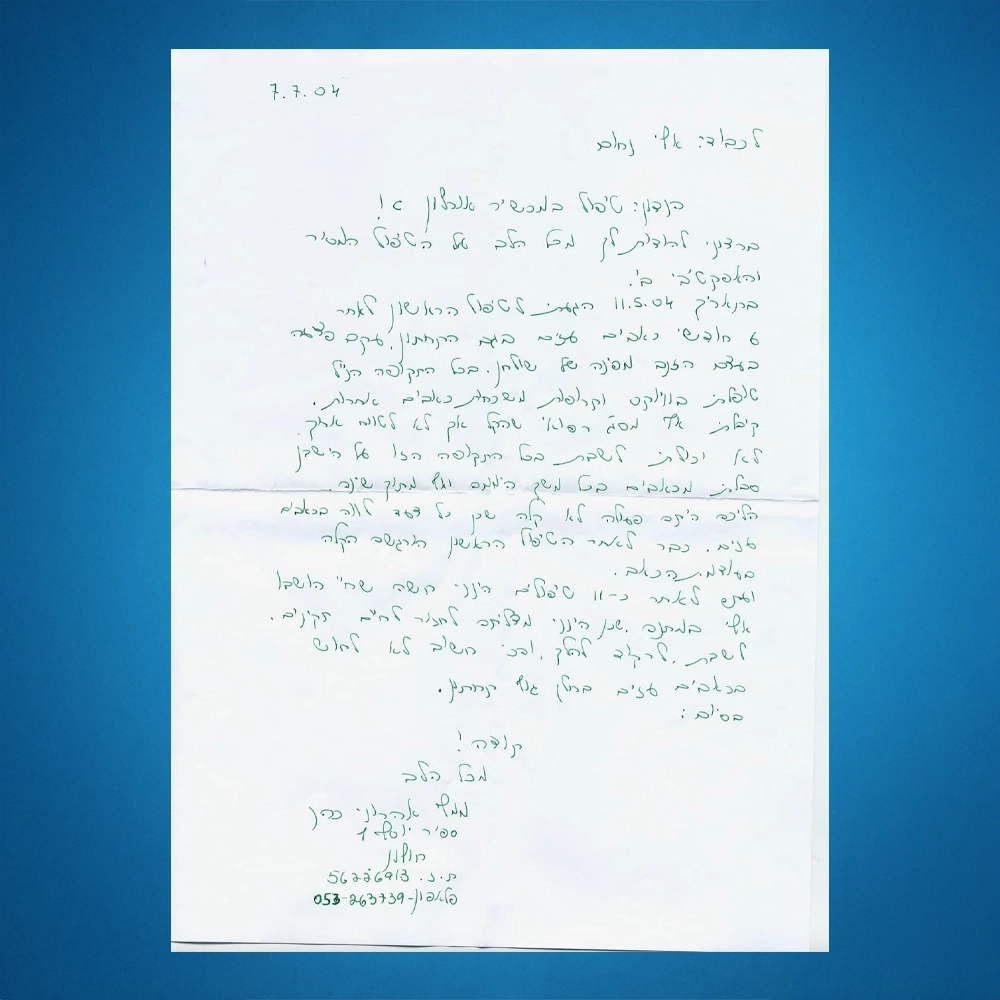 7.7.04
לכבוד: אלי נחום
הנדון: טיפול במכשיר אוולון כ!
ברצוני להודות לך מכל הלב על הטיפול המסור
והאפקטיבי בי.
בתאריך 11.5.04 הגעתי לטיפול הראשון לאחר
6 חודשי כאבים עזים בגב התחתון, עקב פציעה
בעצם הזנב מפינה של שולחן. בכל התקופה הנ"ל
טופלתי בוויוקס וקרופות משככות כאבים אחרות.
קיבלתי אף מסג' רפואי שהקל אך לא לטווח ארוך.
לא יכולתי לשבת בכל התקופה הזו על הישבן
סבלתי מכאבים בכל משך היממה וגם מתוך שינה.
הליכה היתה פעולה לא קלה שכן כל צעד לווה בכאבים
עזים. כבר לאחר הטיפול הראשון הורגשה הקלה
בעוצמת הכאב.
ועתה לאחר כ-11 טיפולים הינני חשה שחיי הושבו
אלי במתנה, שכן הינני מצליחה לחזור לחיים תקינים.
לשבת, לרקוד, ללכת, והכי חשוב לא לחוש
בכאבים עזים בחלק גוף תחתון.
בסיום:
תודה!
מכל הלב
אהרוני כהן
ספיר יוסף 1
חולון
ת.ז. 56226913
פלאפון-053-263739